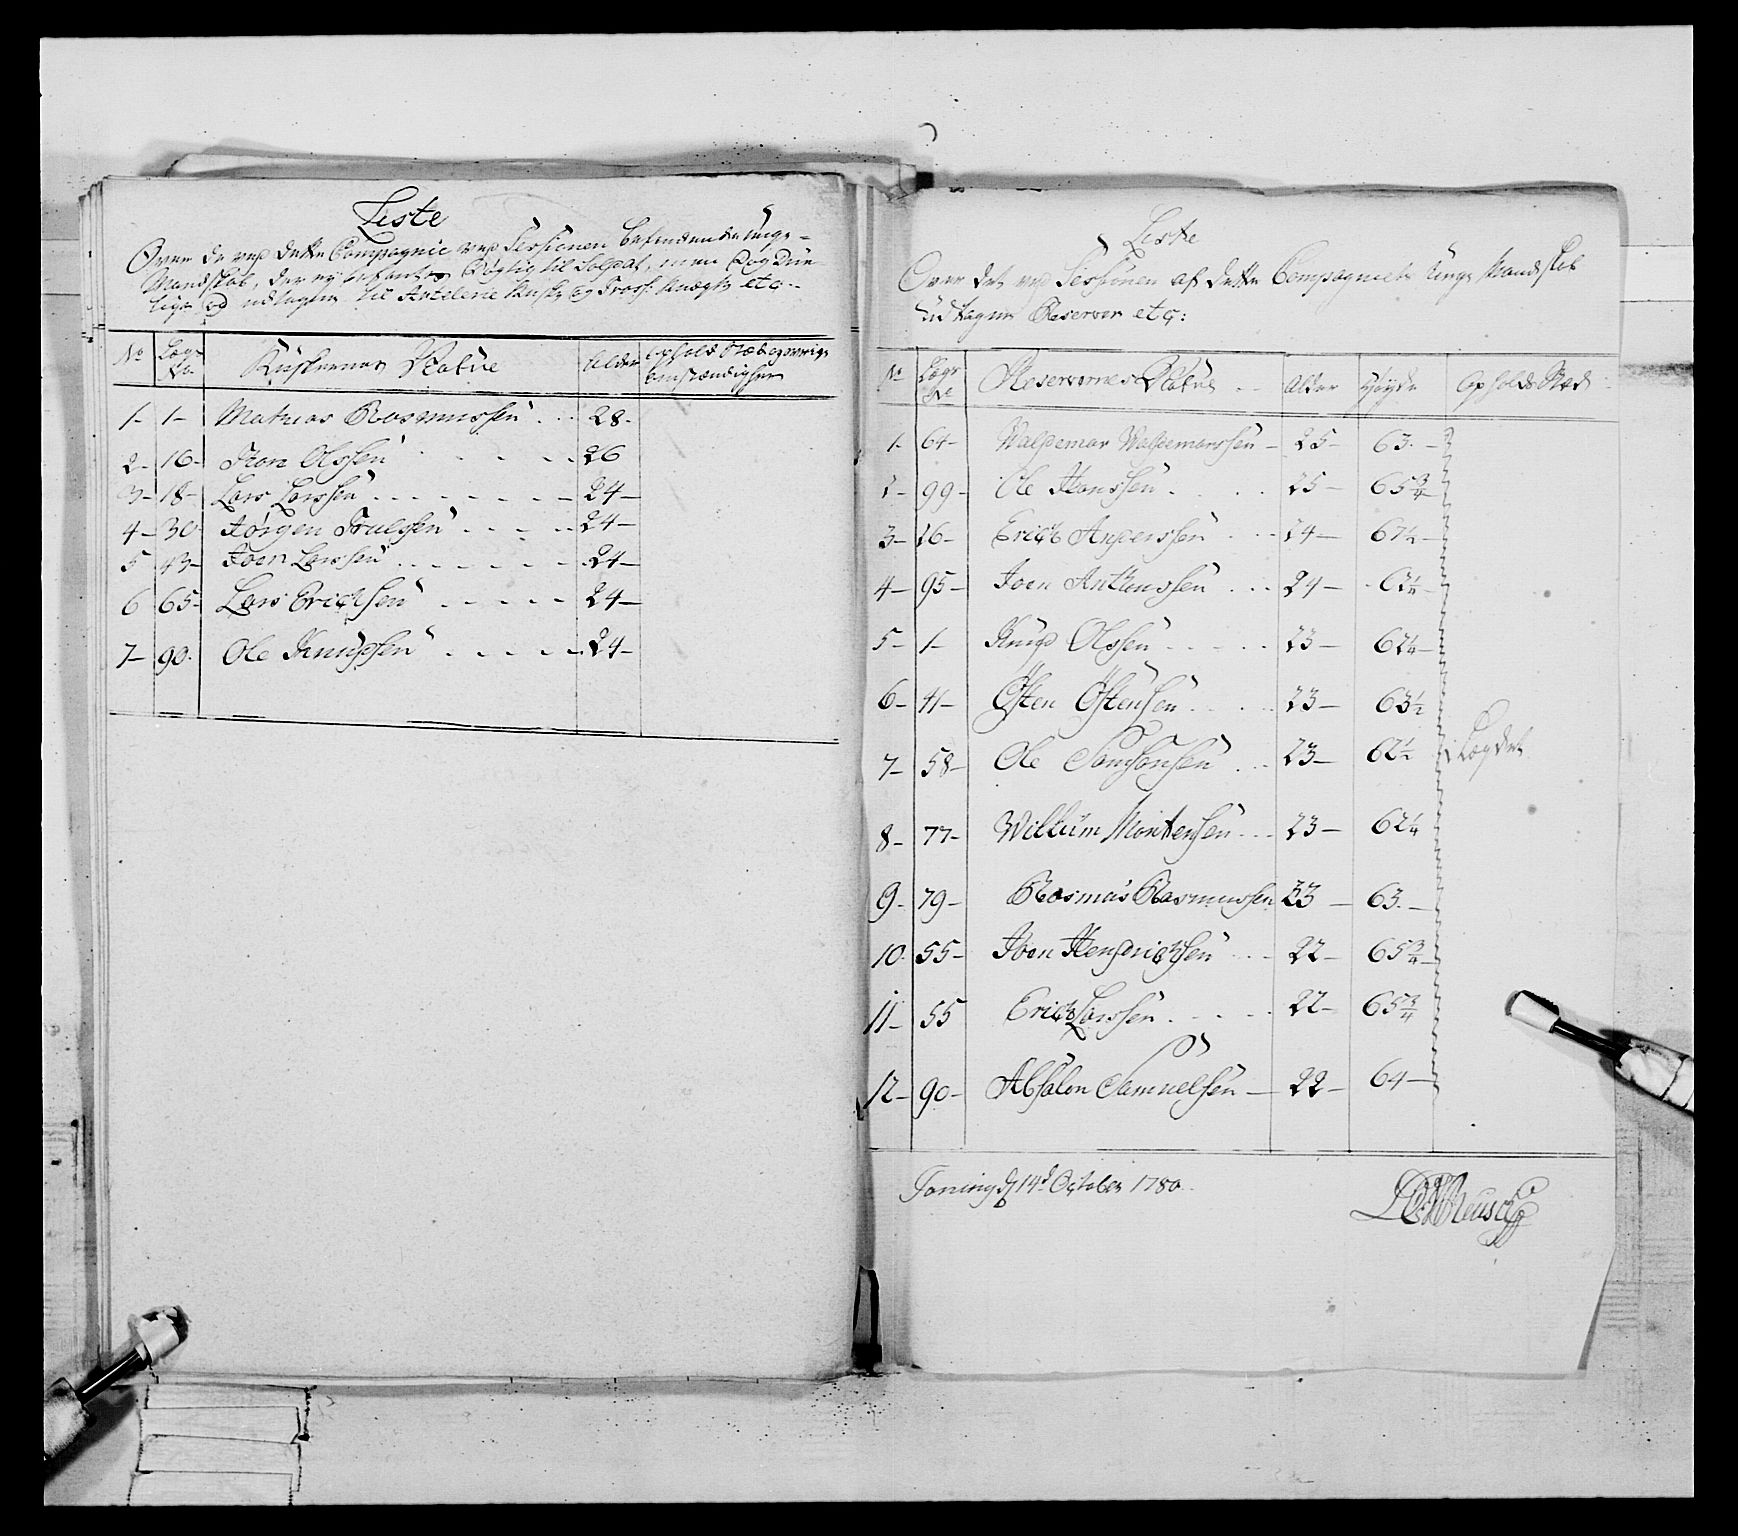 Liste
Over de ved dette Compagnie ved Sessionen befindende unge
Mandskab, der ey befantes døgtig til Soldat, men dog
lige ad udtagne til Artelerie Kuske og Tross Knægte etc:
No Lægs No Kuskernes Natue Alder Ophold Stæd og øvrige omstændigheder
1- 1- Mathias Rasmussen 28-
2- 16- Olssen 26
3- 18- Lars Larssen 24-
4- 30- Jørgen Truelssen 24-
5 43- Joen Larssen 24-
6 65- Lars Erichsen 24-
7- 90- Ole Knudsen 24-
Liste
Over det ved Sessionen af dette Compagniets unge Mandskab
udtagne Reserver etc:
No Lægs No Reservernes Natue Alder Høyde Opholds Stæd
1- 64- Waldemar Waldemarssen 25- 63-
2- 99- Ole Hanssen 25- 65 3/4
3- 26- Erich Anderssen 24- 67 1/4
4- 95- Joen Anthonssen 24- 62 1/4
5- 1- Knud Olssen 23- 62 1/4
6- 41- Østen Østensen 23- 63 1/2
7- 58- Ole Samsonsen 23- 62 1/2 i Lægdet
8- 77- Willum Mortensen 23- 62 1/4
9- 79- Rasmus Rasmussen 23- 63-
10- 55- Joen Hendrichsen 22- 65 3/4
11- 55 Erich Larssen 22- 65 3/4
12- 90- Absalon Samuelsen 22- 64-
Toning d 14d October 1780